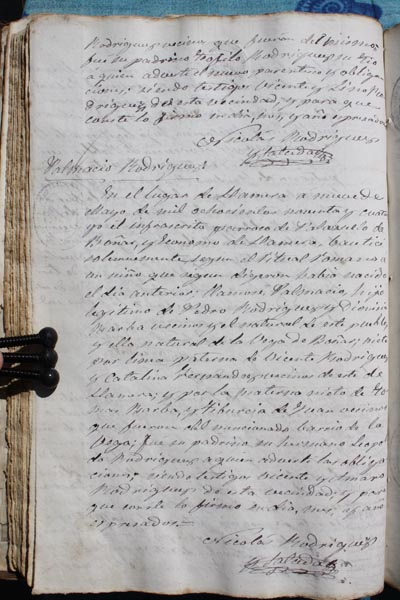 Rodriguez vecinos que fueron del mismo;
fue su padrino Teofilo Rodriguez su tio
a quien advertí el nuevo parentesco y obliga
ciones; siendo testigos Vicente y Lino Ro
driguez de esta vecindad; y para que
conste lo firmo en dia, mes, y año expresados
Nicolás Rodriguez
y Salcedo
Dalmacio Rodriguez
En el lugar de Llamera á nueve de
Mayo de mil ochocientos noventa y cuatro
yo el infrascrito parroco de
Boñar, y Economo de Llamera bauticé
solemnemente según el Ritual Romano a
un niño que según dijeron habia nacido
el dia anterior: llamose Dalmacio, hijo
legitimo de Pedro Rodriguez y Dionisia
Barba vecinos y el natural de este pueblo,
y ella natural de la Vega de Boñar; nieto
por linea paterna de Vicente Rodriguez
y Catalina Fernandez vecinos de
Llamera; y por la materna nieto de To
mas Barba, y Tiburcia de Juan vecinos
que fueron del mencionado barrio de la
Vega; fue su padrino su hermano
Rodriguez a quien advertí las obliga
ciones; siendo testigos Vicente y Amaro
Rodriguez de esta vecindad; y para
que conste lo firmo en dia, mes, y año
expresados.
Nicolás Rodriguez
y Salcedo